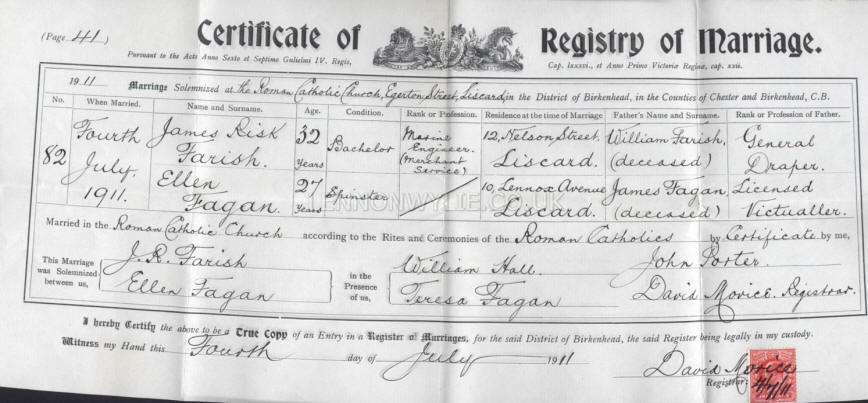 (Page 41)
Certificate of Registry of Marriage.
Pursuant to the Acts Anno Sexto et Septimo Gulielmi IV. Regis, Cap. lxxxvi., et Anno Primo Victoriæ Reginæ, cap. xxii.
1911 Marriage Solemnized at the Roman Catholic Church, Egerton Street, Liscard, in the District of Birkenhead, in the Counties of Chester and Birkenhead, C.B.
No. When Married. Name and Surname. Age. Condition. Rank or Profession. Residence at the time of Marriage Father's Name and Surname. Rank or Profession of Father.
82 Fourth July, 1911.
James Risk Farish. 32 years Bachelor Marine Engineer. (Merchant Service) 12, Nelson Street. Liscard. William Farish, (deceased) General Draper.
Ellen Fagan. 27 years Spinster 10, Lennox Avenue Liscard. James Fagan, (deceased) Licensed Victualler.
LENNONWYLIE.CO.UK
Married in the Roman Catholic Church according to the Rites and Ceremonies of the Roman Catholics by Certificate by me,
This Marriage was Solemnized between us,
J. R. Farish
Ellen Fagan
in the Presence of us,
William Hall.
Teresa Fagan
John Porter.
David Morice. Registrar.
I hereby Certify the above to be a True Copy of an Entry in a Register of Marriages, for the said District of Birkenhead, the said Register being legally in my custody.
Witness my Hand this Fourth day of July 1911
David Morice
Registrar.
4/7/11